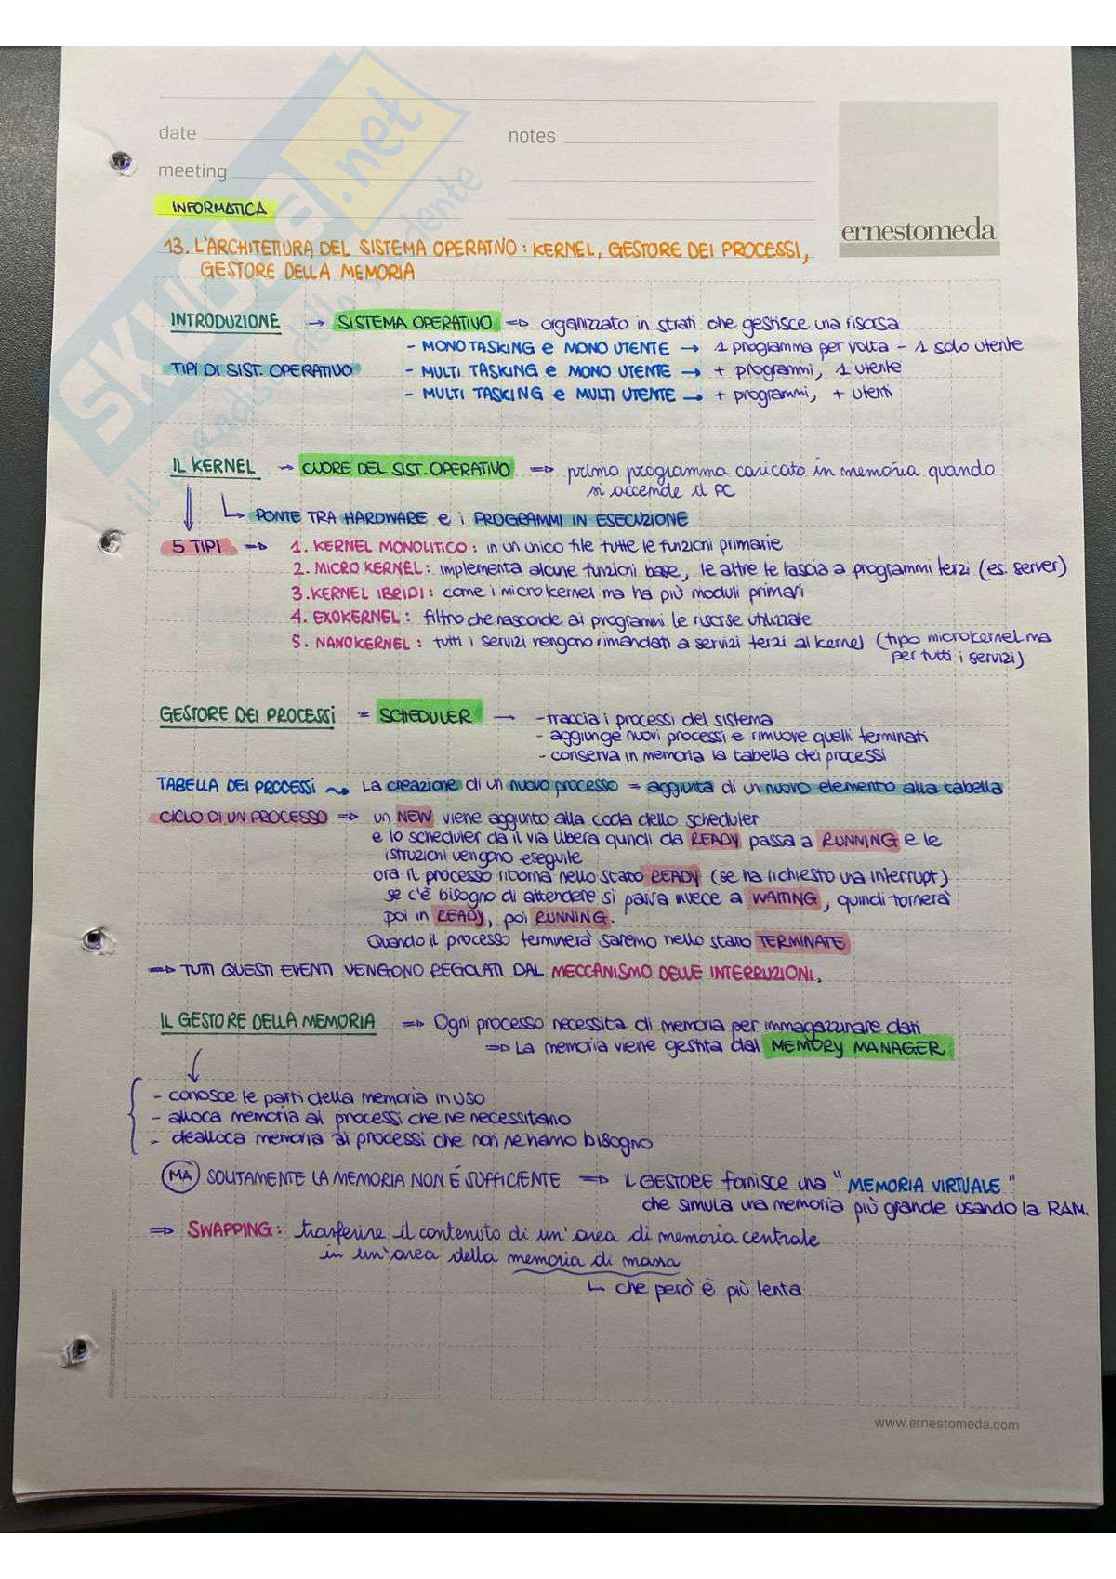 SKUOLA.net
il paradiso dello studente
date
notes
meeting
ernestomeda
INFORMATICA
13. L'ARCHITETTURA DEL SISTEMA OPERATIVO: KERNEL, GESTORE DEI PROCESSI,
GESTORE DELLA MEMORIA
INTRODUZIONE → SISTEMA OPERATIVO => organizzato in strati che gestisce una risorsa
- MONO TASKING e MONO UTENTE → 1 programma per volta - 1 solo utente
TIPI DI SIST. OPERATIVO - MULTI TASKING e MONO UTENTE → + programmi, 1 utente
- MULTI TASKING e MULTI UTENTE → + programmi, + utenti
IL KERNEL → CUORE DEL SIST. OPERATIVO => primo programma caricato in memoria quando
si accende il PC
↳ PONTE TRA HARDWARE e i PROGRAMMI IN ESECUZIONE
5 TIPI => 1. KERNEL MONOLITICO: in un unico file tutte le funzioni primarie
2. MICRO KERNEL: implementa alcune funzioni base, le altre le lascia a programmi terzi (es. server)
3. KERNEL IBRIDI: come i microkernel ma ha più moduli primari
4. EXOKERNEL: filtro che nasconde ai programmi le risorse utilizzate
5. NANOKERNEL: tutti i servizi vengono rimandati a servizi terzi al kernel (tipo microkernel ma
per tutti i servizi)
GESTORE DEI PROCESSI = SCHEDULER → - traccia i processi del sistema
- aggiunge nuovi processi e rimuove quelli terminati
- conserva in memoria la tabella dei processi
TABELLA DEI PROCESSI ⇝ La creazione di un nuovo processo = aggiunta di un nuovo elemento alla tabella
CICLO DI UN PROCESSO => un NEW viene aggiunto alla coda dello scheduler
e lo scheduler da il via libera quindi da READY passa a RUNNING e le
istruzioni vengono eseguite
ora il processo ritorna nello stato READY (se ha richiesto una interrupt)
se c'è bisogno di attendere si passa invece a WAITING, quindi tornerà
poi in READY, poi RUNNING.
Quando il processo terminerà saremo nello stato TERMINATE
=> TUTTI QUESTI EVENTI VENGONO REGOLATI DAL MECCANISMO DELLE INTERRUZIONI.
IL GESTORE DELLA MEMORIA => Ogni processo necessita di memoria per immagazzinare dati
=> La memoria viene gestita dal MEMORY MANAGER
- conosce le parti della memoria in uso
- alloca memoria ai processi che ne necessitano
- dealloca memoria ai processi che non ne hanno bisogno
MA SOLITAMENTE LA MEMORIA NON É SUFFICIENTE => IL GESTORE fornisce una "MEMORIA VIRTUALE"
che simula una memoria più grande usando la RAM.
=> SWAPPING: trasferire il contenuto di un'area di memoria centrale
in un'area della memoria di massa
↳ che però è più lenta
www.ernestomeda.com